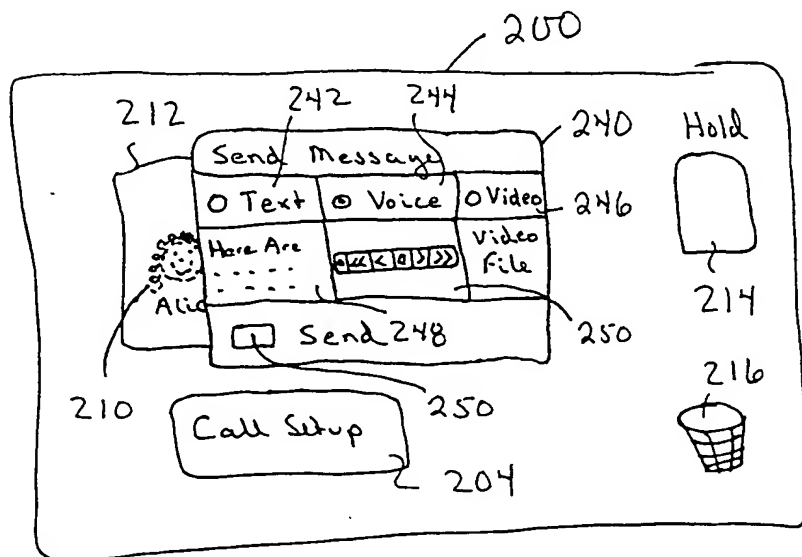 200
242 244
212 240 Hold
Send Message
Text Voice Video 246
Here Are << < > >> Video
File
Alic 214
Send 248 250
216
210 250
Call Setup
204